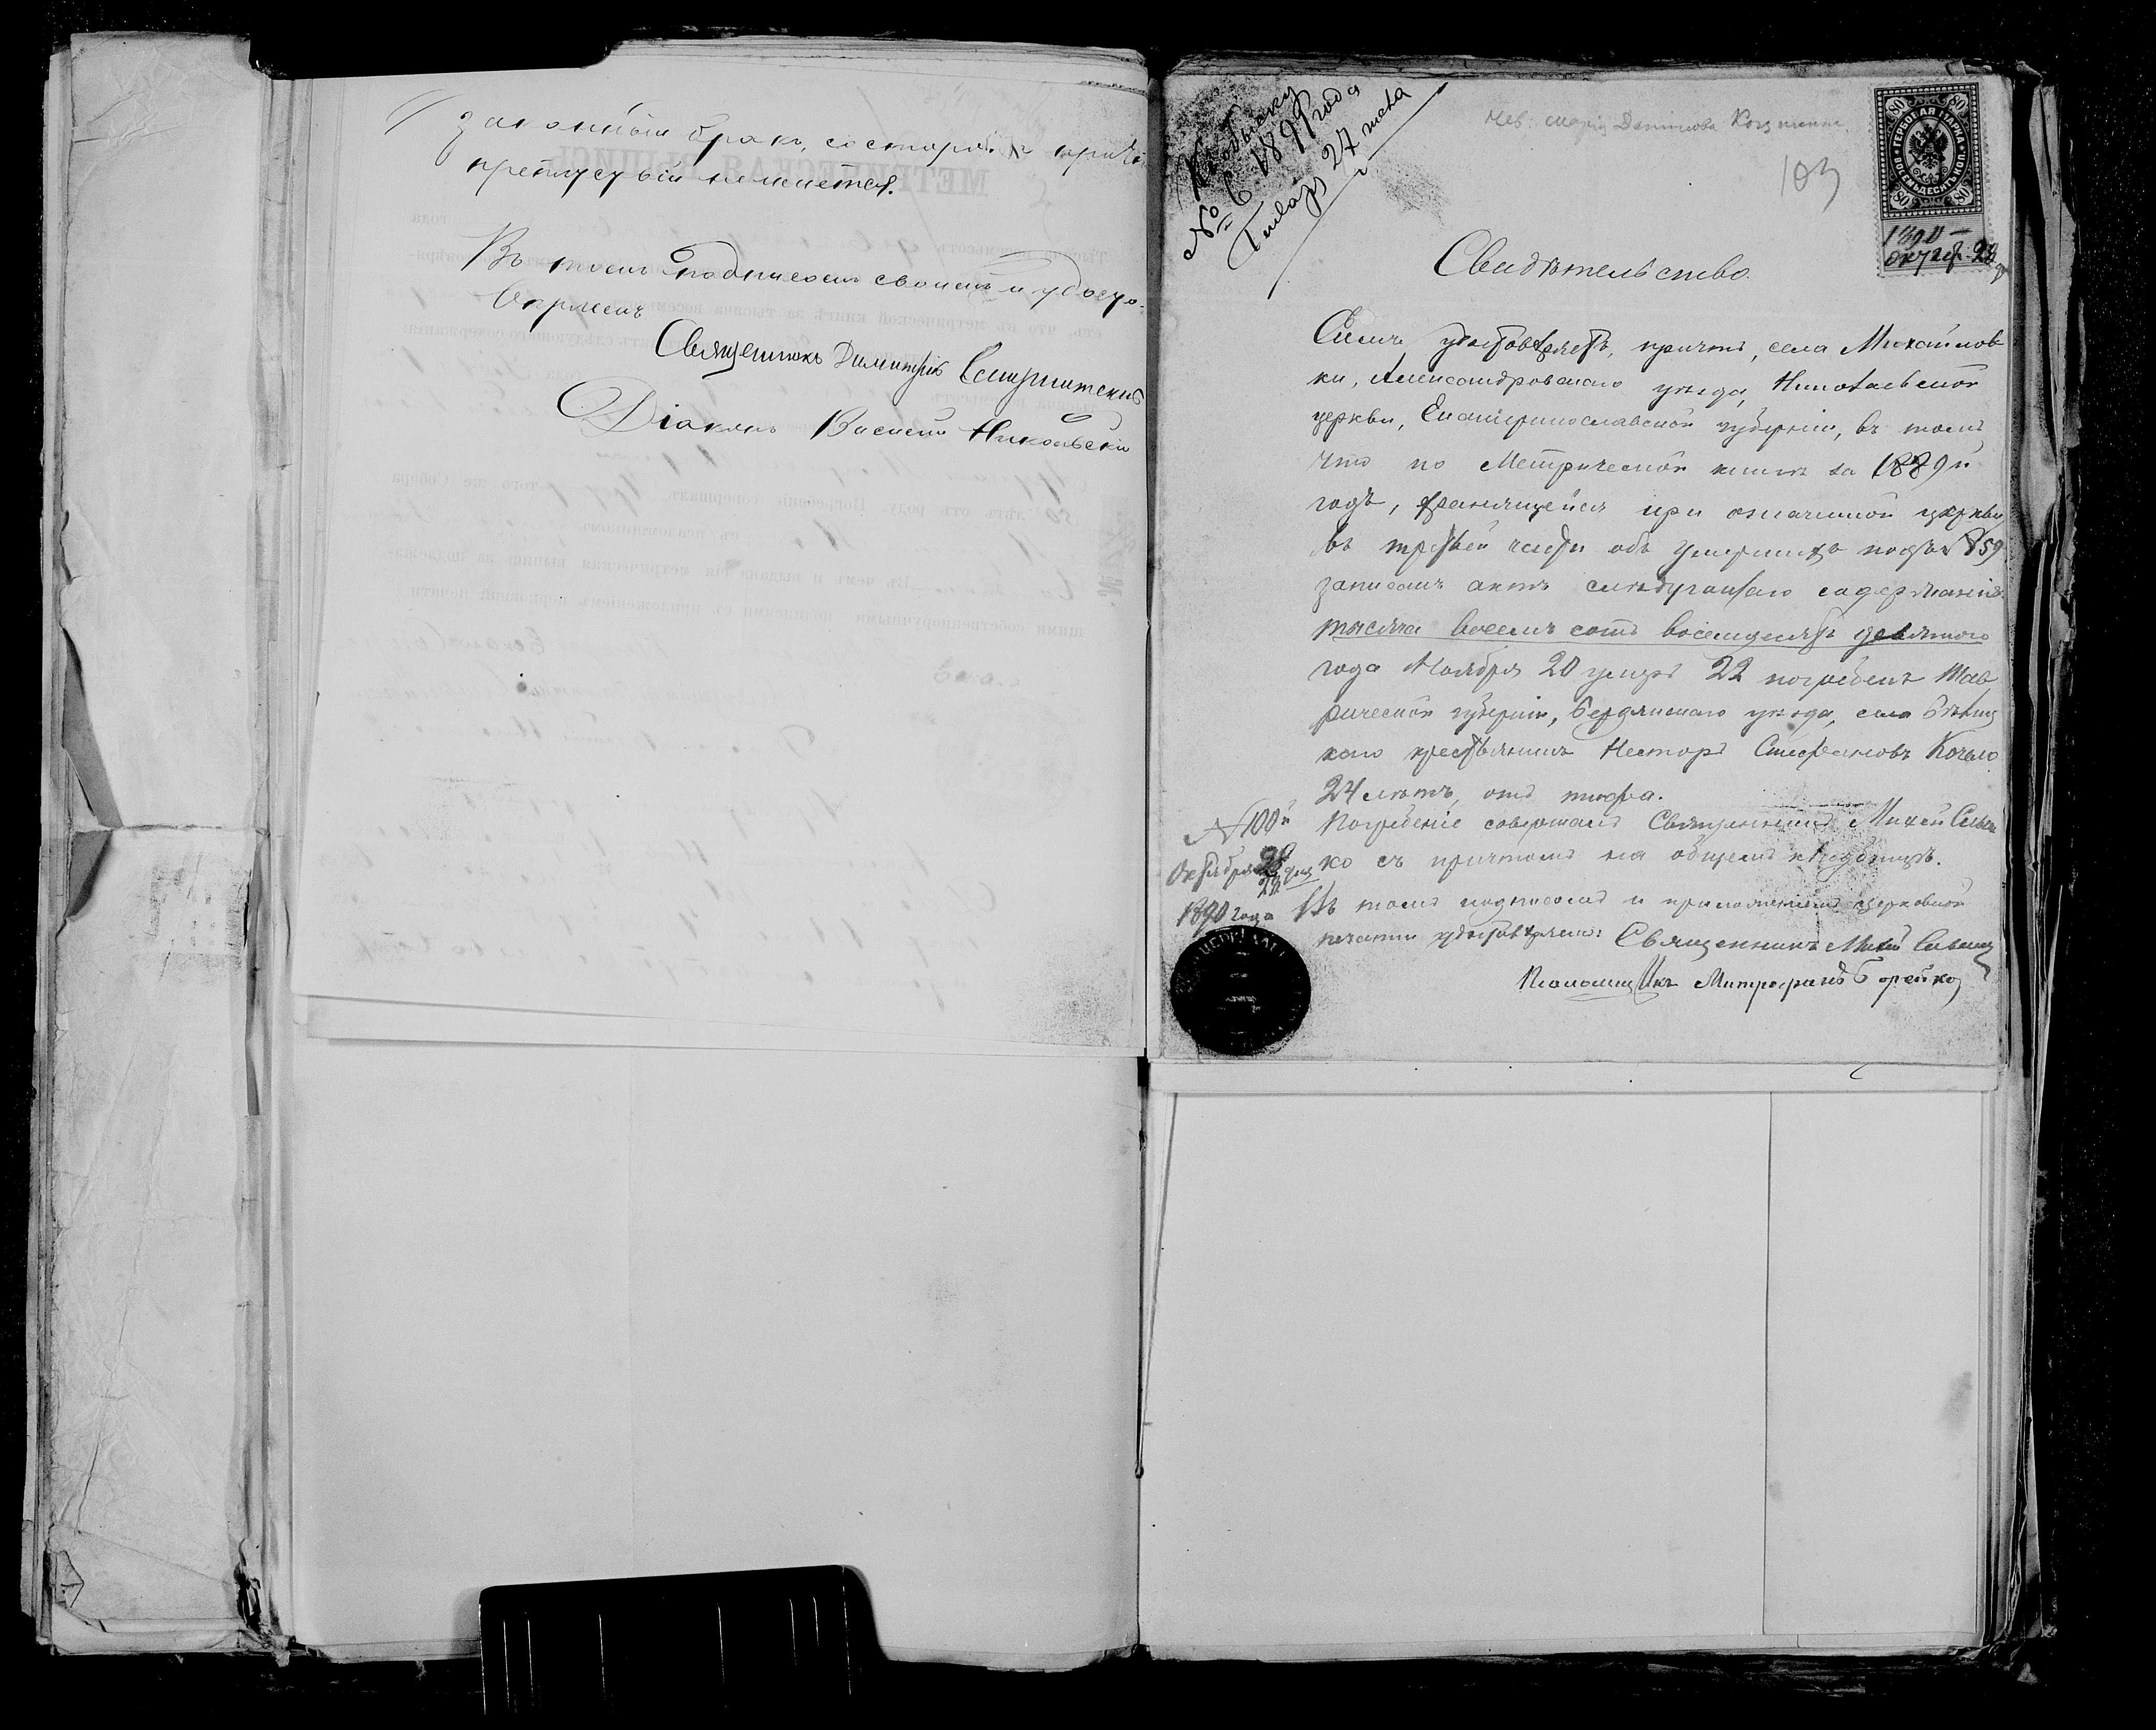 законный бракъ, со стороны причта
препятствій не имѣется.
Въ томъ подписомъ своимъ и удосто-
вѣряемъ
Священникъ Димитрій
Діаконъ Василій Никольскій
Къ обыску
№ 6 1891 года
Января 27 числа
нев: Марія Данилова
103
ГЕРБОВАЯ МАРКА
ВОСЕМЬДЕСЯТЪ КОП.
80 80
80 80
1890
Октяб. 28
Свидѣтельство.
Симъ удостовѣряетъ, причтъ, села Михайлов
ки, Александровскаго уѣзда, Николаевской
церкви, Екатеринославской губерніи, въ томъ,
что по Метрической книгѣ за 1889й
годъ, хранящейся при означенной церкви
въ третьей части объ умершихъ подъ № 59
записанъ актъ слѣдующаго содержанія:
тысяча восемь сотъ восемдесятъ девятого
года Ноября 20 умеръ 22 погребенъ Тав
рической губерніи, Бердянскаго уѣзда, села
каго крестьянинъ Несторъ Стефановъ
24 лѣтъ, отъ тифа.
Погребеніе совершалъ Священникъ Михей
ко съ причтомъ на общемъ кладбищѣ.
Въ томъ подписомъ и приложеніемъ церковной
печати удостовѣряемъ: Священникъ Михей
Псаломщикъ Митрофанъ Борейко
№ 100й
Октября 28 дня
1890 года